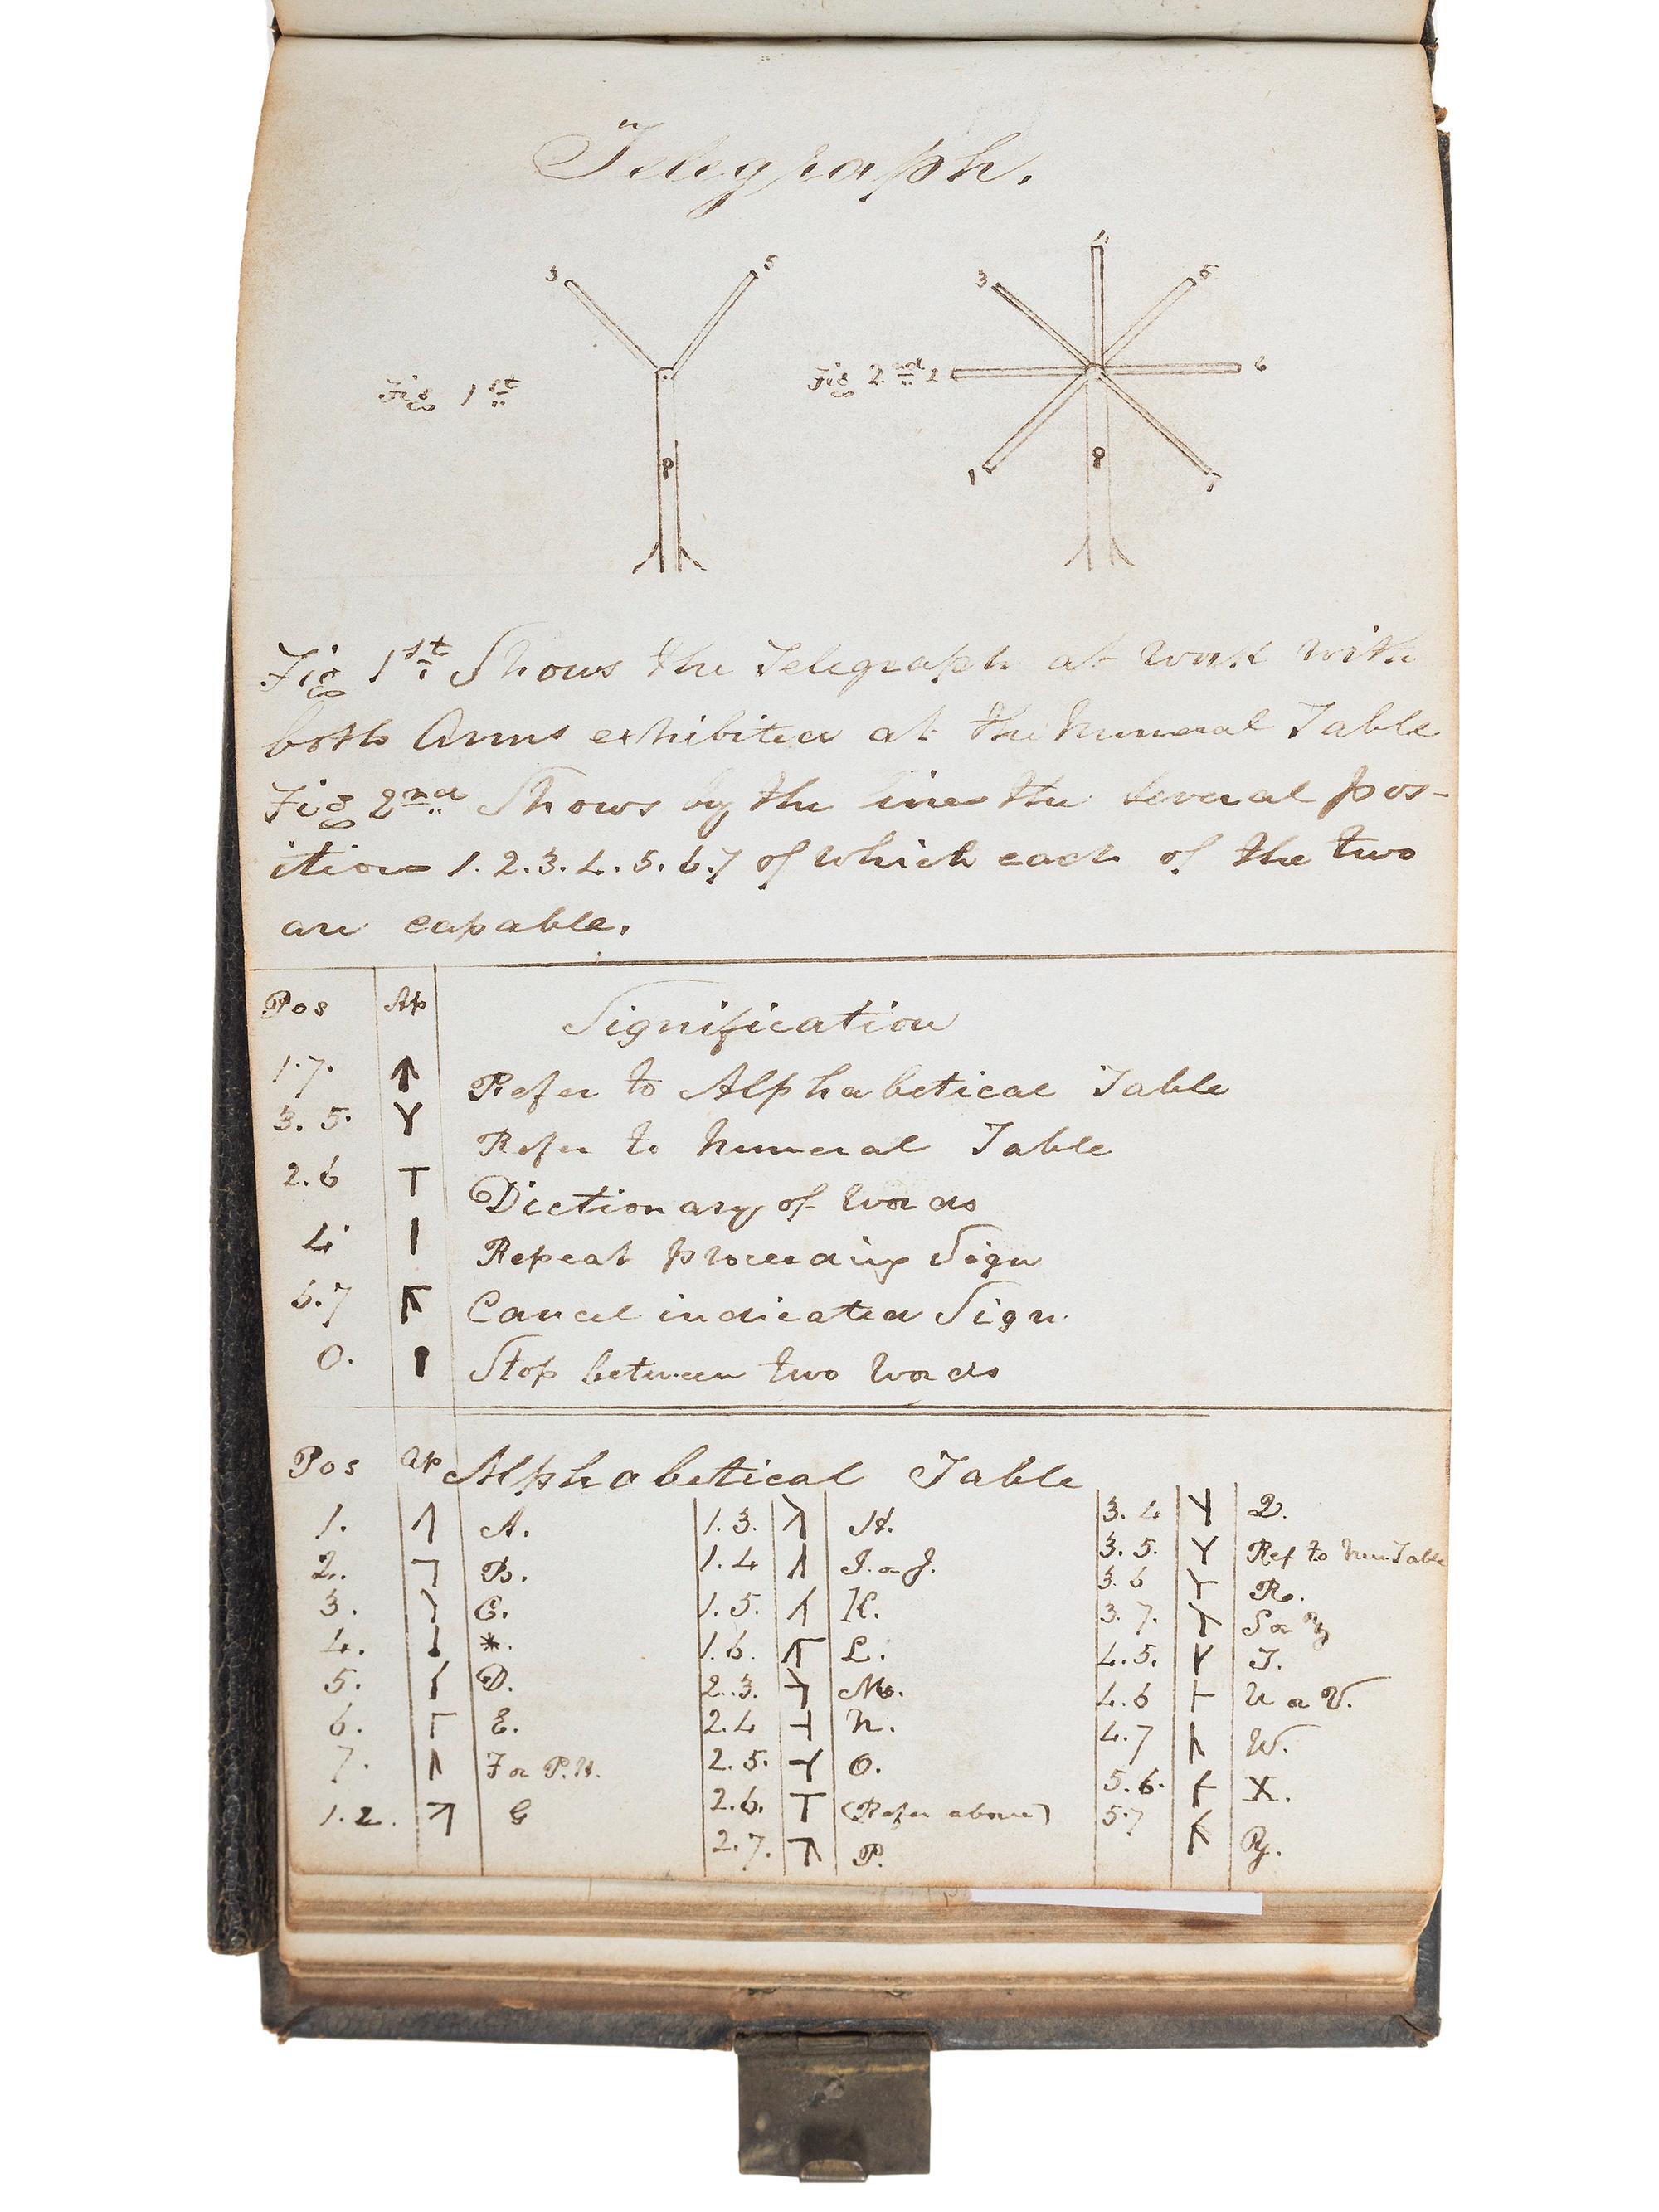 Telegraph.
3 5
4
3 5
Fig 1st
Fig 2nd 2 6
P
P
1 7
Fig 1st Shows the Telegraph at work with
both Arms exhibited at the Numeral Table
Fig 2nd Shows by the lines the several pos-
itions 1. 2. 3. 4. 5. 6. 7 of which each of the two
are capable.
Pos Ap Signification
1. 7. Refer to Alphabetical Table
3. 5. Refer to Numeral Table
2. 6 Dictionary of Words
4 Repeat preceeding Sign
6. 7 Cancel indicated Sign.
0. Stop between two words
Pos Ap Alphabetical Table
1. A. 1. 3. H. 3. 4 Q.
2. B. 1. 4 I. or J. 3. 5. Ref to Num Table
3. C. 1. 5. K. 3. 6 R.
4. *. 1. 6. L. 3. 7. S or
5. D. 2. 3. M. 4. 5. T.
6. E. 2. 4 N. 4. 6 U or V.
7. F or P.H. 2. 5. O. 4. 7 W.
1. 2. G 2. 6. (Refer above) 5. 6. X.
2. 7. P. 5 7 Y.